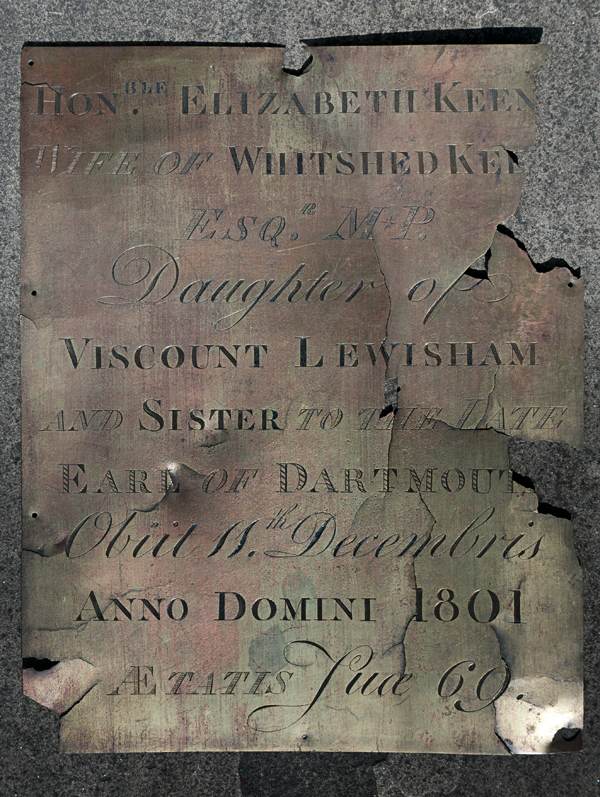 HON.BLE ELIZABETH KEEN
WIFE OF WHITSHED KEE
ESQ.R M.P.
Daughter of
VISCOUNT LEWISHAM
AND SISTER TO THE LATE
EARL OF DARTMOUT
Obiit 11.th Decembris
ANNO DOMINI 1801
ÆTATIS Suæ 69.